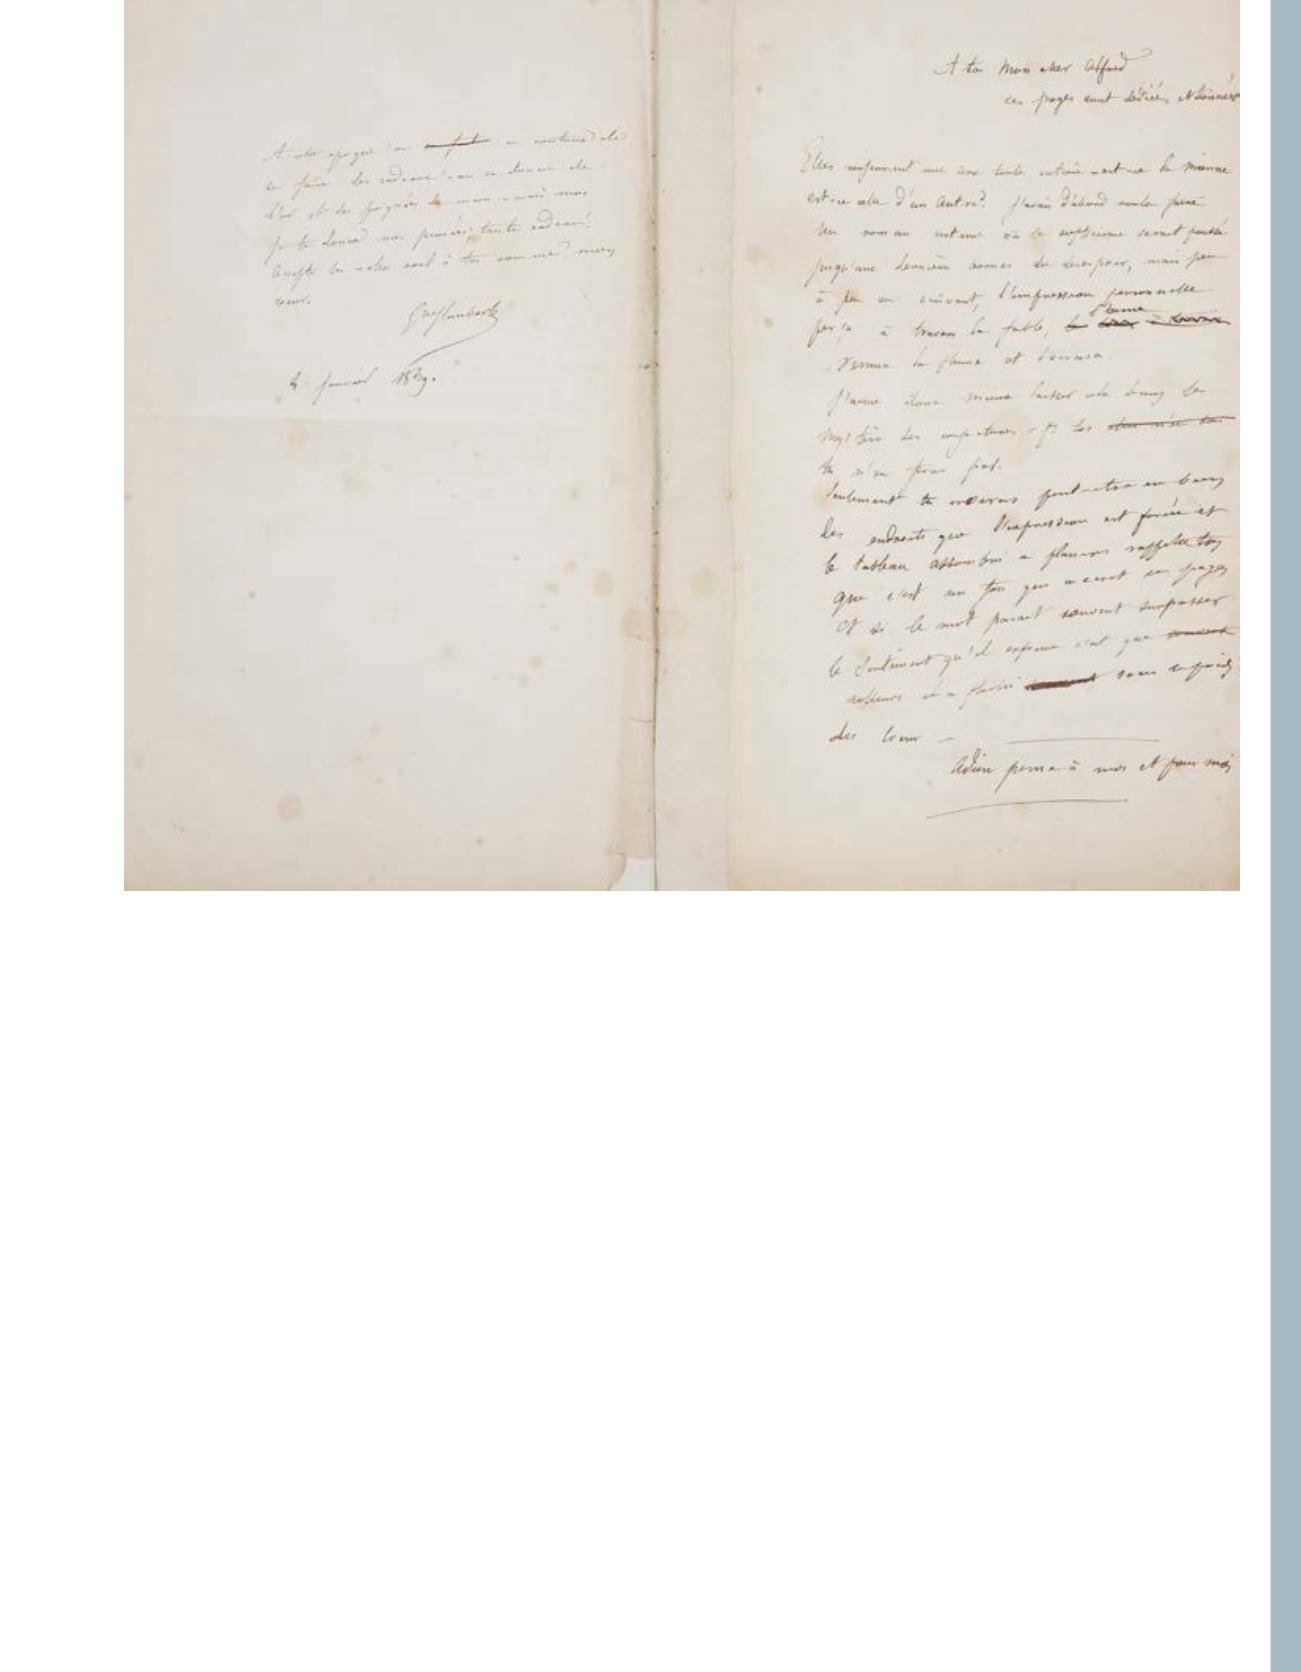 A cette époque on en coutume de
se faire des cadeaux - on se donne de
l'or et des poignées de main - mais moi
je te donne mes pensées, triste cadeau!
Accepte les - elles sont à toi comme mon
coeur.
Gve Flaubert
4 Janvier 1839.
A toi mon cher Alfred
ces pages sont dédiées et données
Elles renferment une âme toute entière - est-ce la mienne
est-ce celle d'un autre? j'avais d'abord voulu faire
un roman intime où le scepticisme serait poussé
jusqu'aux dernières bornes du désespoir, mais peu
à peu en écrivant, l'impression personnelle
perça à travers la fable, l'âme
remua la plume et l'écrasa.
J'aime donc mieux laisser cela dans le
mystère des conjectures - pr toi
tu n'en feras pas.
Seulement tu croiras peut-être en bien
des endroits que l'expression est forcée et
le tableau assombri à plaisir rappelle toi
que c'est un fou qui a écrit ces pages
et si le mot parait souvent surpasser
le sentiment qu'il exprime c'est que
ailleurs il a fléchi sous le poids
du coeur -
Adieu pense à moi et pour moi